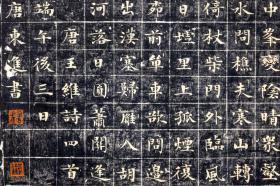 中峯變陰晴衆壑
水問樵夫寒山轉
倚杖柴門外臨風
日墟里上孤煙復
柳前單車欲問邊
出漢塞歸雁入胡
河落日圓蕭關逢
唐王維詩四首
端午後三日
唐東進書